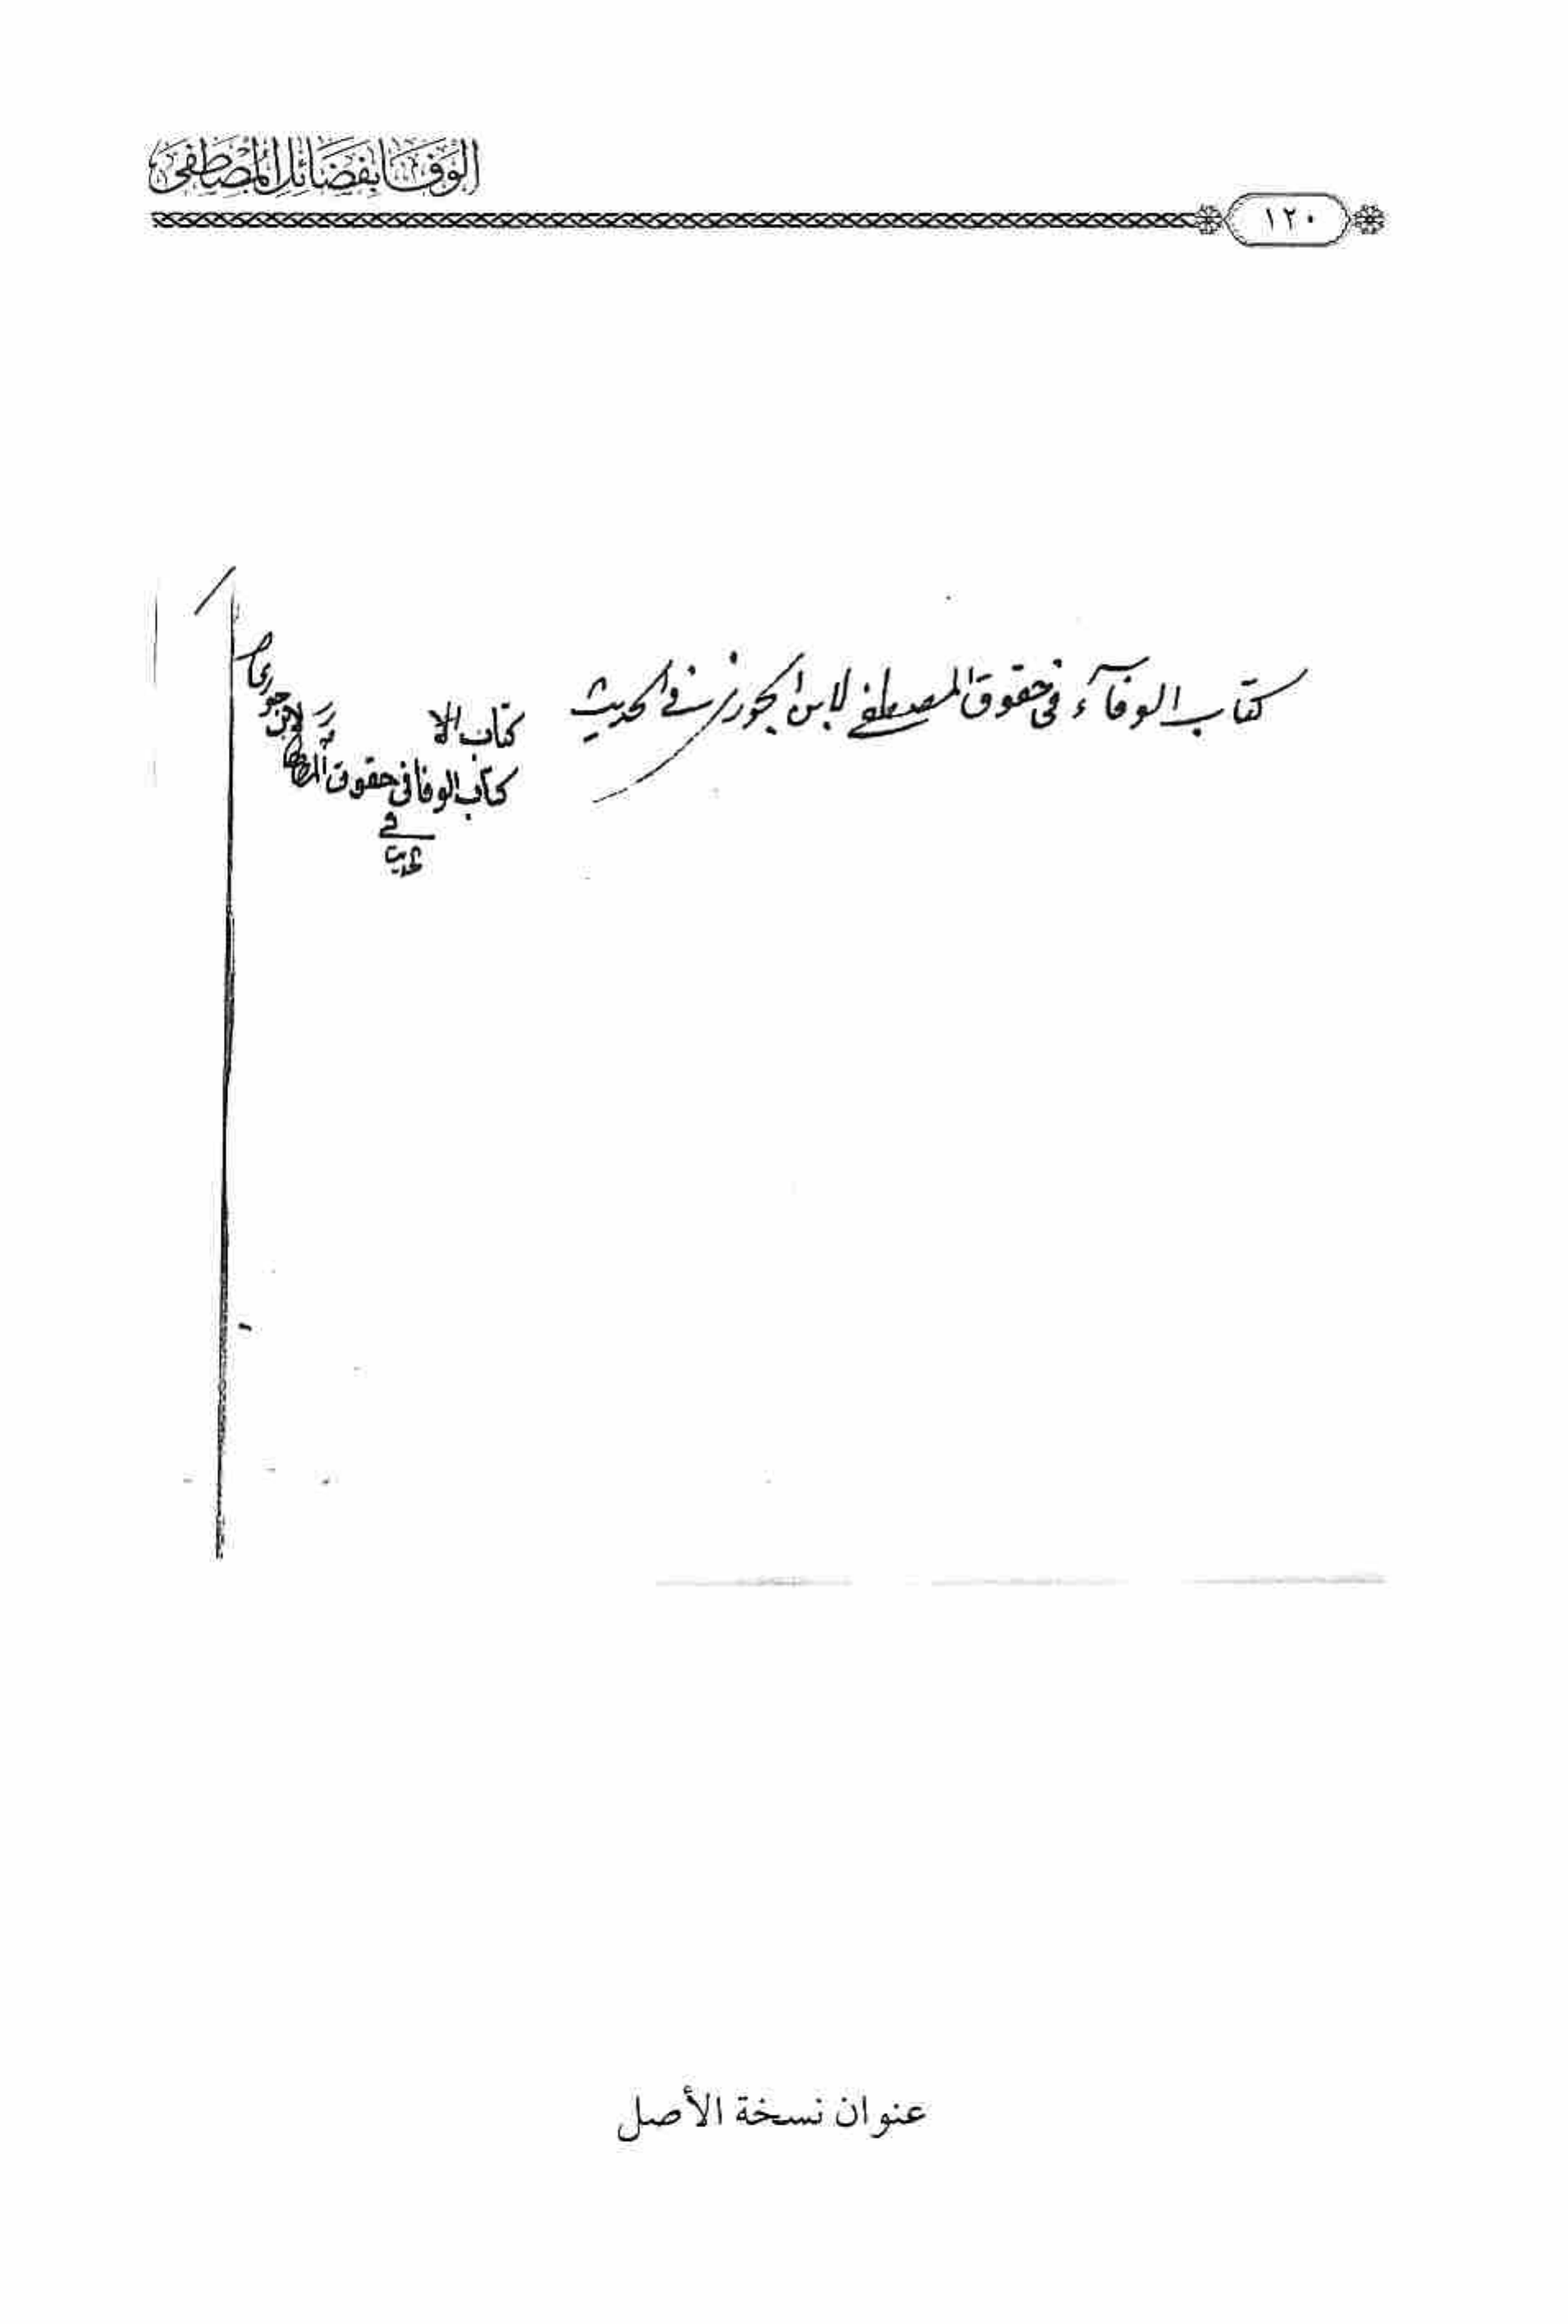 الوفا بفضائل المصطفى
١٢٠
كتاب الوفآء في حقوق المصطفى لابن الجوزي في الحديث
كتاب الا
كتاب الوفا في حقوق المصطفى لابن جوزي
في
حديث
عنوان نسخة الأصل